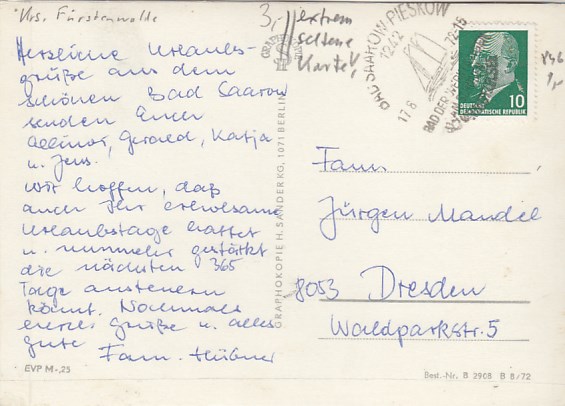 Krs. Fürstenwalde
3,- extrem
seltene
Karte!
Herzliche Urlaubs-
grüße aus dem
schönen Bad Saarow
senden Euch
Gerald, Katja
u. Jens.
Wir hoffen, daß
auch Ihr erholsame
Urlaubstage hattet
u. nunmehr gestärkt
die nächsten 365
Tage ansteuern
könnt. Nochmals
Grüße u. alles
gute Fam. Hübner
EVP M -,25
GRAPHOKOPIE H. SANDER KG, 1071 BERLIN
BAD SAAROW PIESKOW
1242
17.8.72-15
BAD DER
DEUTSCHE
DEMOKRATISCHE REPUBLIK
10
Fam.
Jürgen Mandel
8053 Dresden
Waldparkstr. 5
Best.-Nr. B 2908 B 8/72